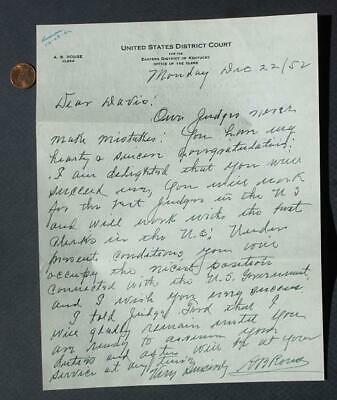 UNITED STATES DISTRICT COURT
FOR THE
EASTERN DISTRICT OF KENTUCKY
OFFICE OF THE CLERK
A. B. ROUSE
CLERK
Monday Dec 22/52
Dear Davis:
Our Judges never
make mistakes! You have my
hearty & sincere Congratulations!
I am delighted that you will
succeed me, You will work
for the best Judges in the U S
and will work with the best
clerks in the U.S! Under
present conditions you will
occupy the nicest position
connected with the U.S. Government
and I wish you every success
I told Judge Ford that I
will gladly remain until you
are ready to assume your
duties and after will be at your
service at any time
Very Sincerely A B Rouse